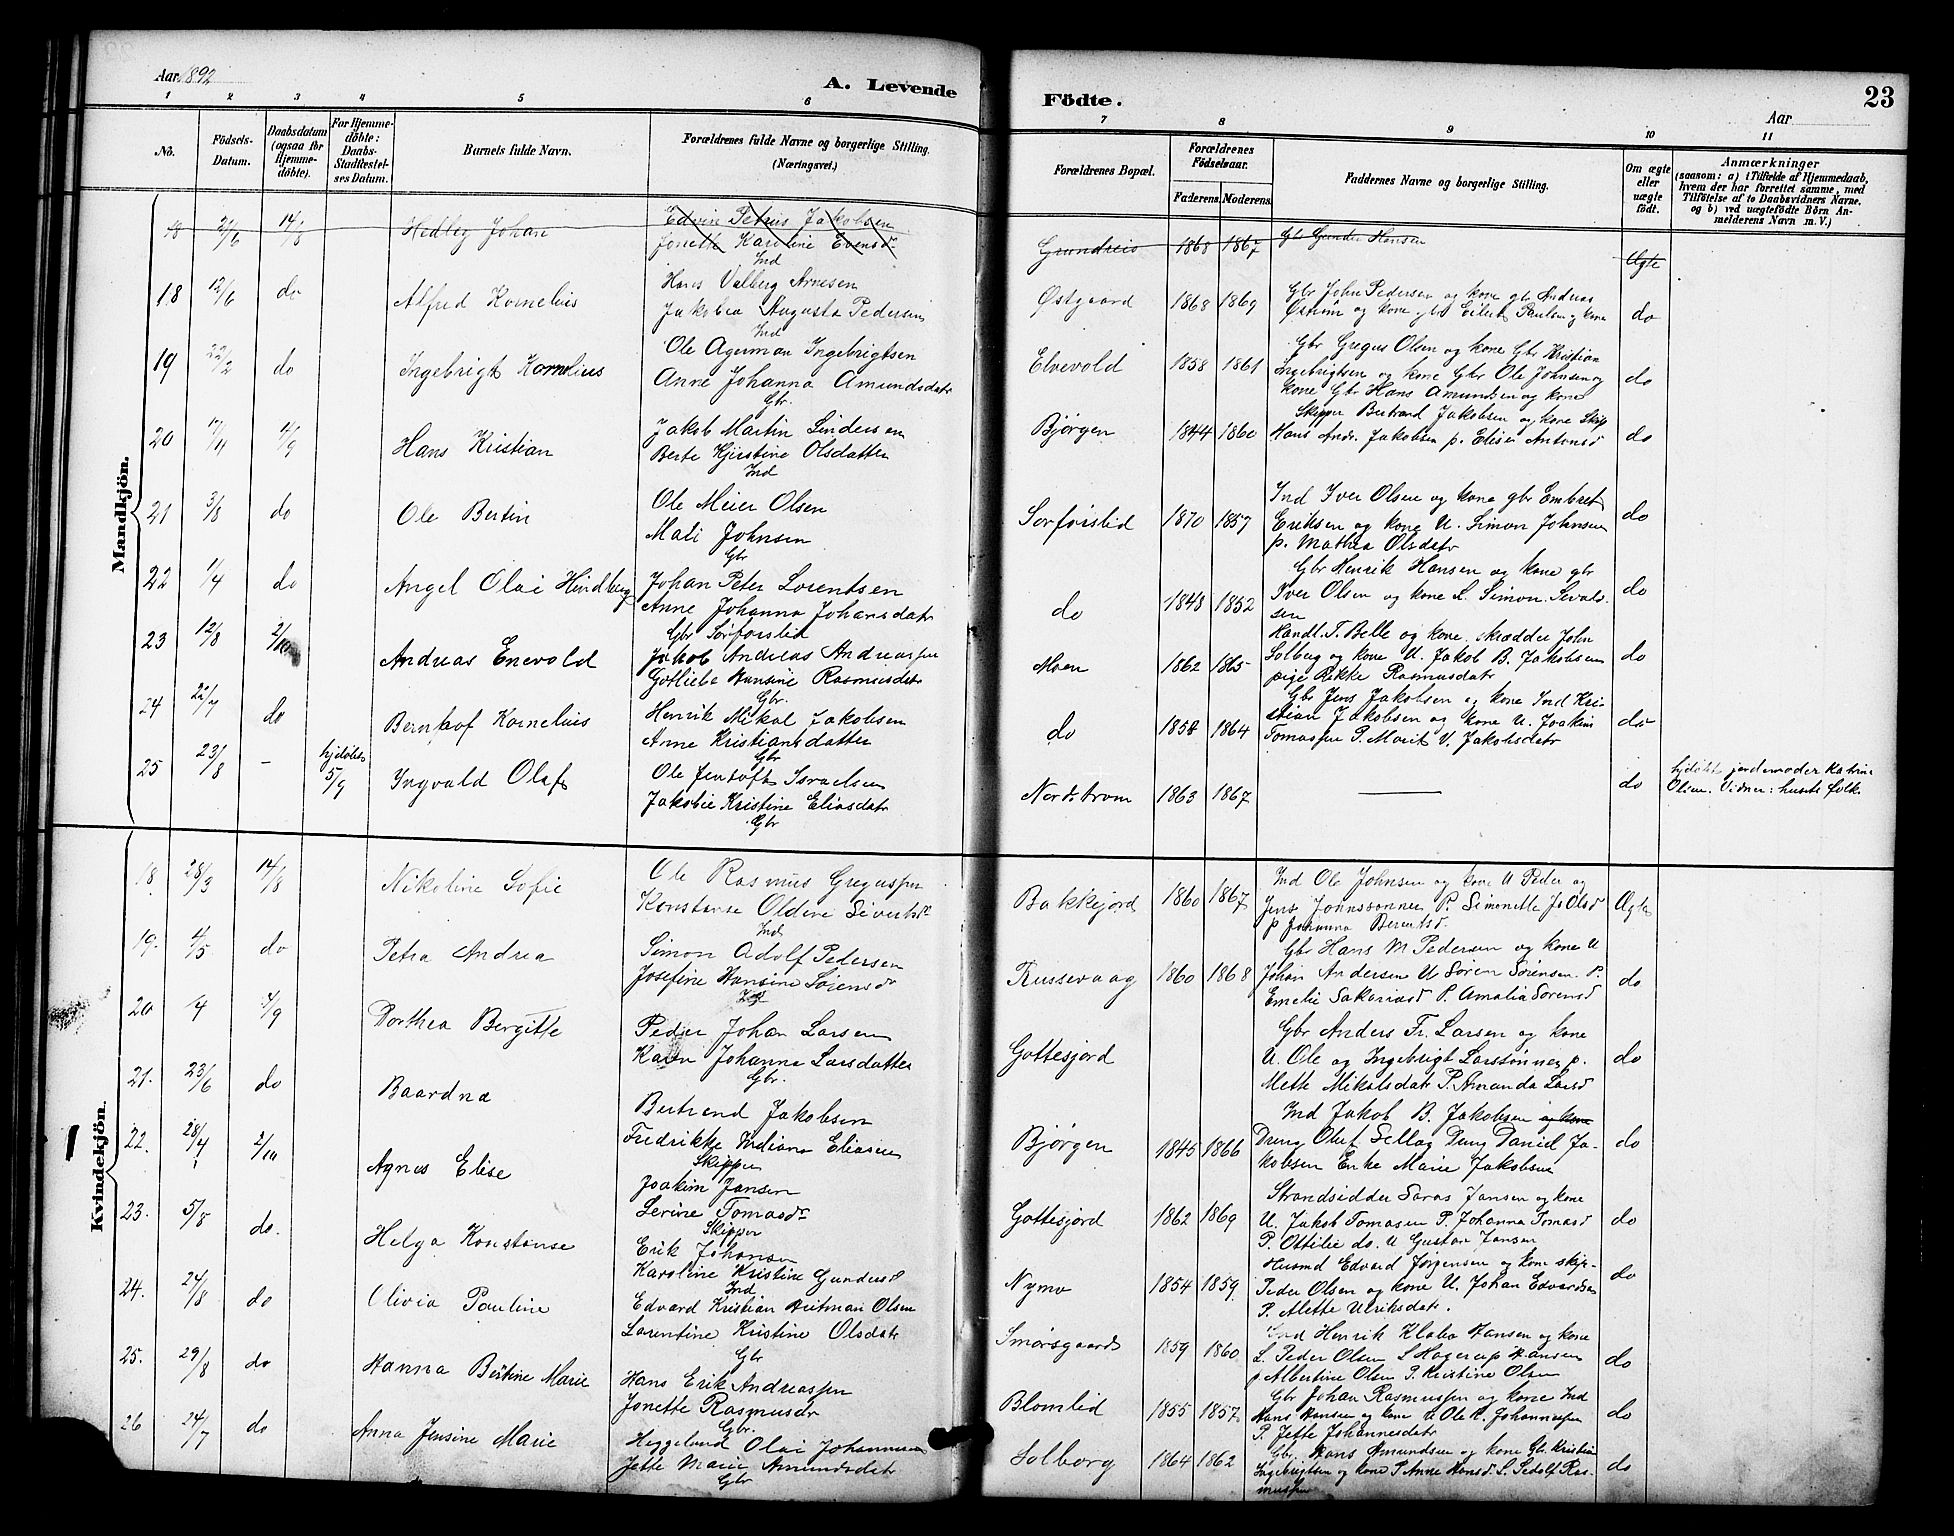 Aar 1892
A. Levende
Födte.
23
Aar
1 2 3 4 5 6 7 8 9 10 11
No.
Födsels-Datum.
Daabsdatum (ogsaa for Hjemme-döbte).
For Hjemme-döbte: Daabs-Stadfæstel-ses Datum.
Barnets fulde Navn.
Forældrenes fulde Navne og borgerlige Stilling. (Næringsvei.)
Forældrenes Bopæl.
Forældrenes Födselsaar.
Faderens. Moderens.
Faddernes Navne og borgerlige Stilling.
Om ægte eller uægte födt.
Anmærkninger
(saasom: a) i Tilfælde af Hjemmedaab, hvem der har forrettet samme, med Tilföielse af to Daabsvidners Navne. og b) ved uægtefödte Börn An-melderens Navn m. V.)
Mandkjön.
18 2/6 14/8 Hedley Johan
Edvin Petrus Jakobsen
Jonette Karoline Evensdr
Ind
Grundreis 1868 1867
Gbr Gunder Hansen
Ægte
18 12/6 do Alfred Kornelius
Hans Valberg Arnesen
Jakobea Augusta Pedersen
Ind
Østgaard 1868 1869
Gbr John Pedersen og kone gbr Andreas
Østrum og kone gbr Eilert Paulsen og kone
do
19 22/2 do Ingebrigt Kornelius
Ole Agerman Ingebrigtsen
Anne Johanna Amundsdatr
Gbr.
Elvevold 1858 1861
Gbr Gregus Olsen og kone Gbr Kristian
Ingebrigtsen og kone Gbr Ole Johnsen og
kone Gbr Hans Amundsen og kone
do
20 17/4 4/9 Hans Kristian
Jakob Martin Sindersen
Berte Kjerstine Olsdatter
Ind
Bjørgen 1844 1860
Skipper Bertrand Jakobsen og kone Skip
Hans Andr. Jakobsen p. Elise Antonsd
do
21 3/8 do Ole Bertin
Ole Meier Olsen
Mali Johnsen
Gbr
Sørforslid 1870 1857
Ind Iver Olsen og kone gbr Embret
Eriksen og kone U. Simon Johnsen
p. Mathea Olsdatr
do
22 1/4 do Angel Olai Hindberg
Johan Peter Lorentsen
Anne Johanna Johansdatr
Gbr Sørforslid
do 1848 1852
Gbr Henrik Hansen og kone gbr
Iver Olsen og kone S. Simon Sevald-
sen
do
23 12/8 2/10 Andreas Enevold
Jakob Andreas Andreassen
Gotlieba Hansine Rasmusdatr
Gbr.
Moen 1862 1865
Handl. T. Belle og kone. Skrædder John
Solberg og kone U. Jakob B. Jakobsen
pige Rikke Rasmusdatr
do
24 22/7 do Bernhof Kornelius
Henrik Mikal Jakobsen
Anne Kristiansdatter
Gbr
do 1858 1864
Gbr Jens Jakobsen og kone Ind Kri-
stian Jakobsen og kone U. Joakim
Tomassen P. Marit V. Jakobsdatr
do
25 23/8 – hjdøbt 5/9 Ingvald Olaf
Ole Jentoft Israelsen
Jakobie Kristine Eliasdatr
Gbr
Nordstrom 1863 1867
do
hjdøbt jordemoder Katrine
Olsen. Vidner: husets folk.
Kvindekjön.
18 28/3 14/8 Nikoline Sofie
Ole Rasmus Gregussen
Konstanse Oldine Sivertsdr
Ind
Bakkejord 1860 1867
Ind Ole Johnsen og kone U Peder og
Jens Johnssønner P. Simonette Js Olsd
p Johanna Berentsd.
Ægte
19. 4/5 do Petra Andrea
Simon Adolf Pedersen
Josefine Hansine Sörensdr
Ind
Russevaag 1860 1868
Gbr Hans M Pedersen og kone U
Johan Andersen U Søren Sørensen. P.
Emelie Sakariasd P. Amalia Sørensd
do
20 4 4/9 Dorthea Bergitte
Peder Johan Larsen
Karen Johanna Larsdatter
Gbr.
Gottesjord
Gbr Anders Fr. Larsen og kone
U. Ole og Ingebrigt Larssønner p.
Mette Mikalsdatr P. Amanda Larsd
do
21. 23/6 do Baardna
Bertrand Jakobsen
Fredrikke Indiana Eliasen
Skipper
Bjørgen 1845 1866
Ind Jakob B. Jakobsen og kone
Dreng Oluf Sellag Dreng Daniel Ja-
kobsen Enke Marie Jakobsen
do
22. 28/4 2/10 Agnes Elise
Joakim Jansen
Serine Tomasdr
Skipper
Gottesjord 1862 1869
Strandsidder Saras Jansen og kone
U. Jakob Tomasen P. Johanna Tomasd
P. Ottilie do. U Gustav Jansen
do
23. 5/8 do. Helga Konstanse
Erik Johansen
Karoline Kristine Gundersd
Ind
Nymo 1854 1859
Husmd Edvard Jørgensen og kone skip-
Peder Olsen og kone U. Johan Edvardsen
P. Alette Ulriksdatr.
do
24. 24/8 do Olivia Pauline
Edvard Kristian Britman Olsen
Larentine Kristine Olsdatr
Gbr
Smørsgaard 1859 1860
Ind Henrik Klabo Hansen og kone
S. Peder Olsen S Hagerup Hansen
p Albertine Olsen P. Kristine Olsen
do
25. 29/8 do Hanna Bertine Marie
Hans Erik Andreassen
Jonette Rasmusdr
Gbr.
Blomlid 1855 1857
Gbr Johan Rasmussen og kone Ind
Hans Hansen og kone U Ole K. Johannessen
P. Jette Johannesdatr
do
26 24/7 do Anna Jensine Marie
Heggelund Olai Johannesen
Jette Marie Amundsdatr
Gbr
Solborg 1864 1862
Gbr. Hans Amundsen og kone Gbr Kristian
Ingebrigtsen og kone P Anne Hansd. S. Sedolf Ras-
mussen
do